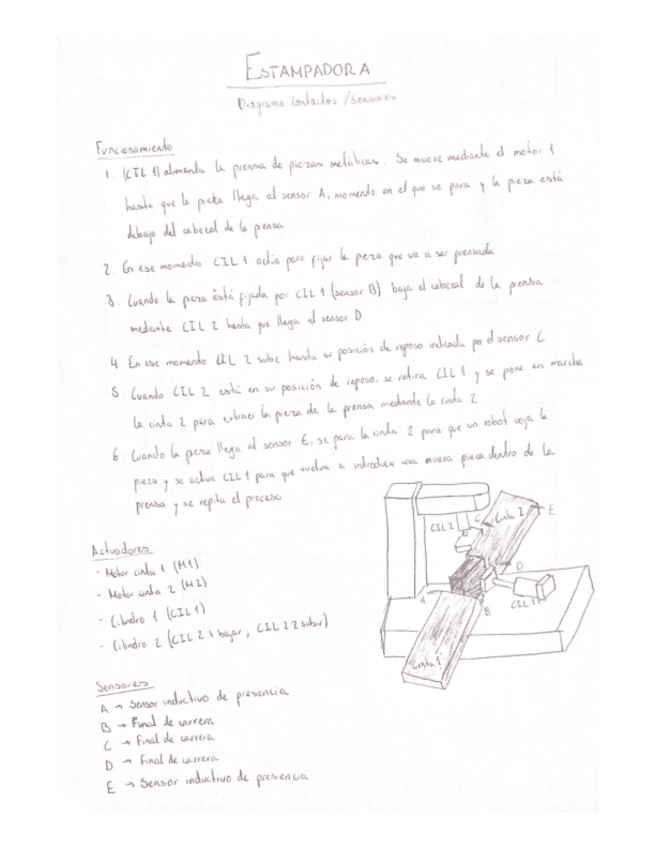 ESTAMPADORA
Diagrama Contactos / Sensores
Funcionamiento
1. (CIL 1) alimenta la prensa de piezas metálicas. Se mueve mediante el motor 1
hasta que la pieza llega al sensor A, momento en el que se para y la pieza está
debajo del cabezal de la prensa
2. En ese momento CIL 1 actúa para fijar la pieza que va a ser prensada
3. Cuando la pieza está fijada por CIL 1 (sensor B) baja el cabezal de la prensa
mediante CIL 2 hasta que llega al sensor D
4 En ese momento CIL 2 sube hasta su posición de reposo indicada por el sensor C
5. Cuando CIL 2 está en su posición de reposo, se retira CIL 1 y se pone en marcha
la cinta 2 para extraer la pieza de la prensa mediante la cinta 2
6. Cuando la pieza llega al sensor E, se para la cinta 2 para que un robot coja la
pieza y se activa CIL 1 para que vuelva a introducir una nueva pieza dentro de la
prensa y se repita el proceso
CIL 2
C
Cinta 2
E
D
A
B
CIL 1
Cinta 1
Actuadores
- Motor cinta 1 (M1)
- Motor cinta 2 (M2)
- Cilindro 1 (CIL 1)
- Cilindro 2 (CIL 2.1 bajar ; CIL 2.2 subir)
Sensores
A → Sensor inductivo de presencia
B → Final de carrera
C → Final de carrera
D → Final de carrera
E → Sensor inductivo de presencia